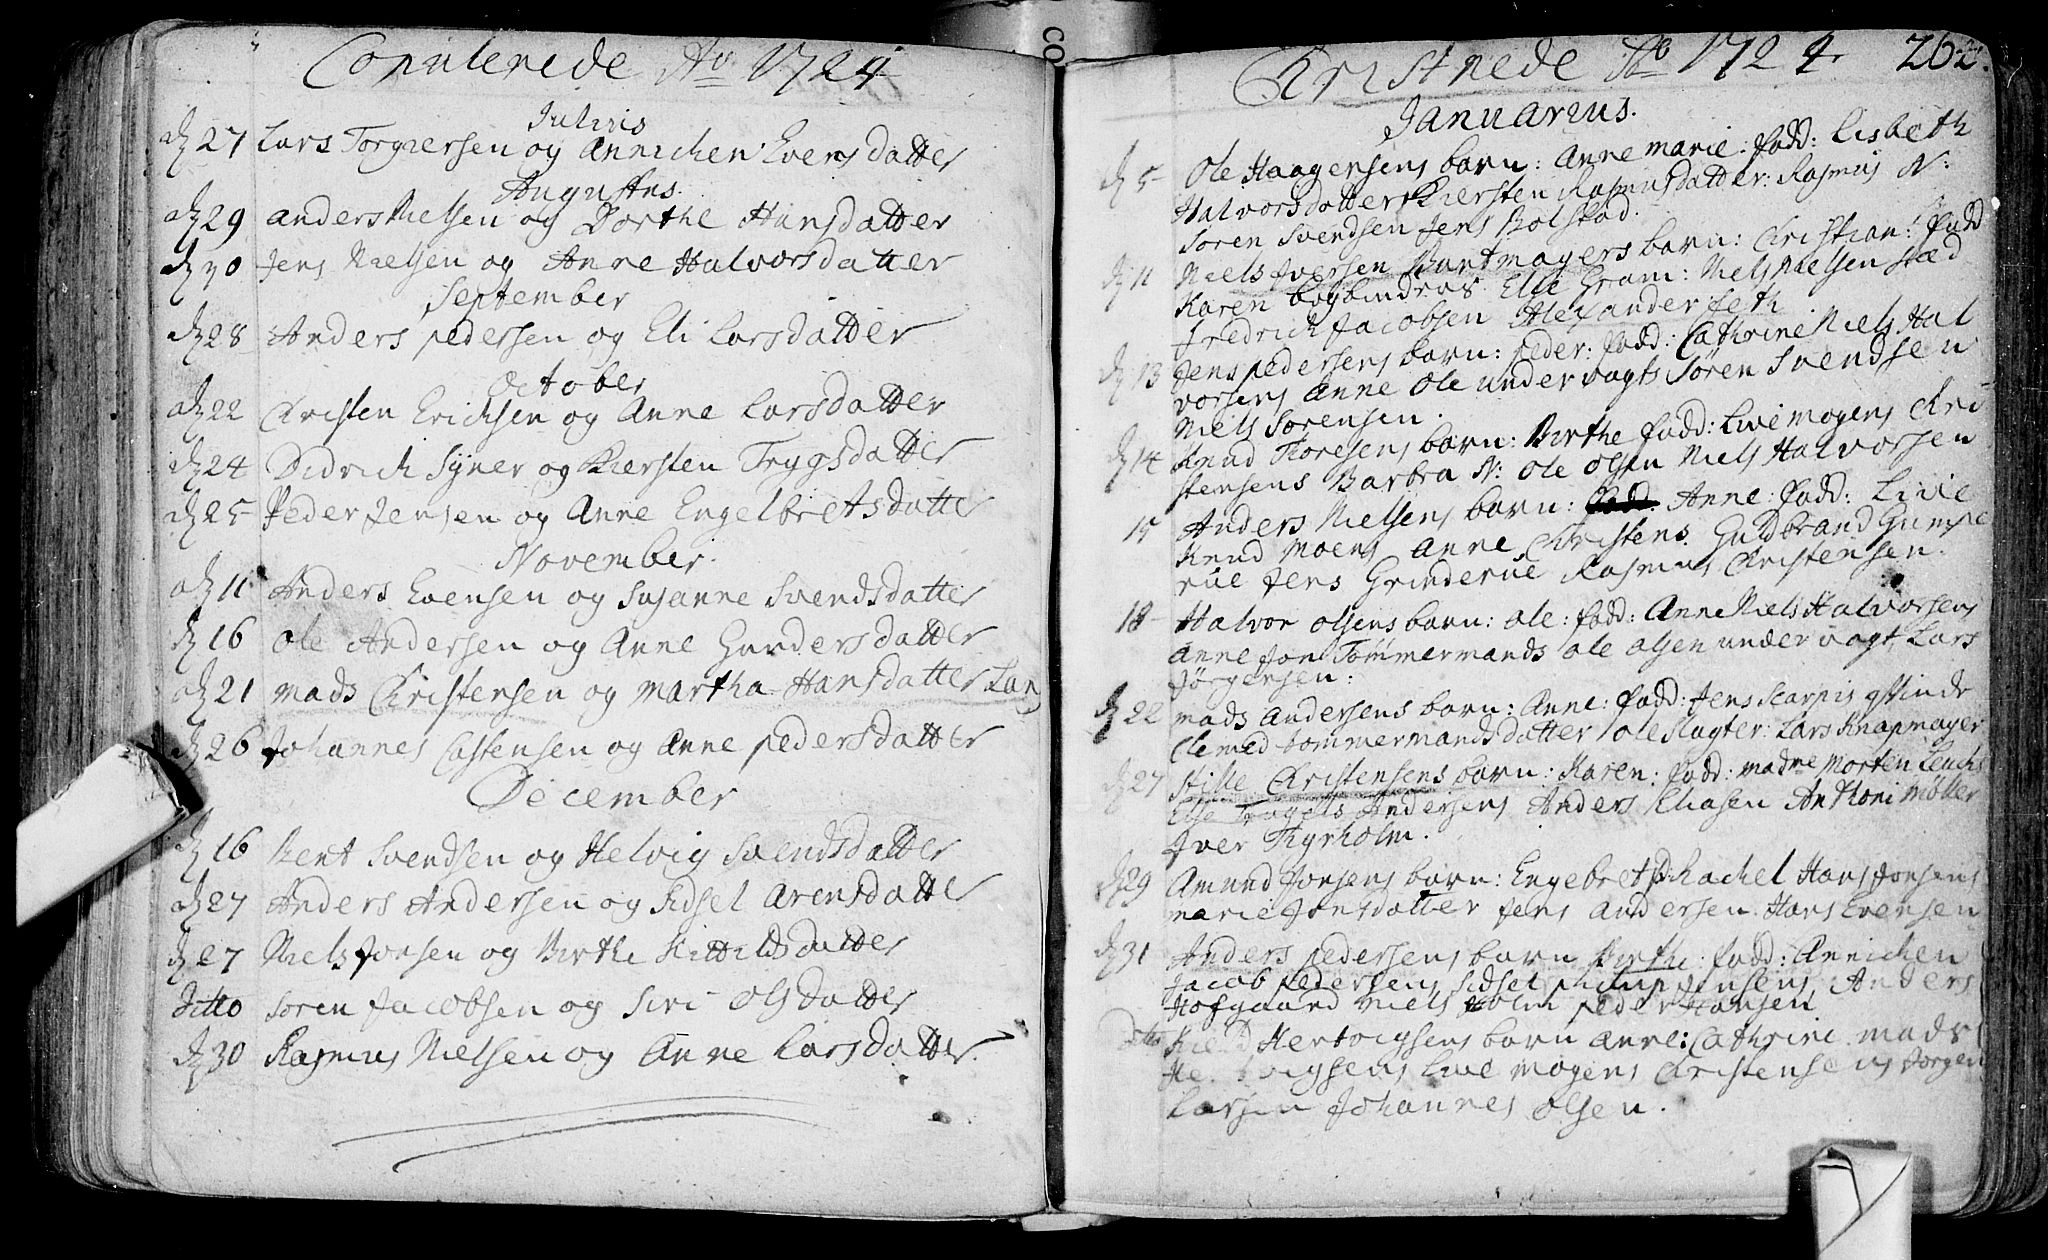 Copulerede Ao 1724
Julius
d 27 Lars Torgiersen og Annichen Evensdatter
Augustus.
d 29 Anders Nielsen og Dorthe Hansdatter
d 30 Jens Nielsen og Anne Halvorsdatter
September
d 28 Anders Pedersen og Eli Larsdatter
October
d 22 Christen Erichsen og Anne Larsdatter
d 24 Didrich Syner og Kiersten Trygsdatter
d 25 Peder Jensen og Anne Engelbretsdatter
November.
d 11 Anders Evensen og Susanne Svendsdatter
d 16 Ole Andersen og Anne Gundersdatter
d 21 Mads Christensen og Martha Hansdatter Lun
d 26 Johannes Castensen og Anne Pedersdatter
December
d 16 Bent Svendsen og Helvig Svendsdatter
d 27 Anders Andersen og Sidsel Arensdatter
d 27 Niels Jonsen og Birthe Kittilsdatter
Ditto Søren Jacobsen og Siri Olsdatter
d 30 Rasmus Nielsen og Anne Larsdatter.
Christnede Ao 1724. 262.
Januarius.
d 5 Ole Haagensens barn: Anne Marie: fadd: Lisbeth
Halvorsdatter Kiersten Rasmusdatter: Rasmus N:
Søren Svendsen Jens Bolstad.
d 11 Niels Iversen Buntmagers barn: Christian: fadd
Karen bogbinders Else Gram: Niels Nielsen stæd
Fredrich Jacobsen Alexander Feth
d 13 Jens Pedersens barn: Peder: fadd: Cathrine Niels Hal
vorsens Anne Ole undervagts Søren Svendsen
Niels Sørensen.
d 14 Knud Thoresens barn: Birthe fadd: Live Mogens Chri
stensens Barbra N: Ole Olsen Niels Halvorsen
15 Anders Nielsens barn: Anne: fadd: Livie
Knud Moens Anne Christens Guldbrand Gumpe
rue Jens Grinderue Rasmus Christensen.
18 Halvor Olsens barn: Ole: fadd: Anne Niels Halvorsens
Anne Jon Tømmermands Ole Olsen undervagt, Lars
Jørgensen:
d 22 Mads Andersens barn: Anne: fadd: Jens Scarpis qvinde
Clemed tømmermandsdatter Ole Slagter: Lars Knapmager
d 27 Stille Christensens barn: Karen: fadd: Madme Morten Leuchs
Else Trugels Andersens Anders Eliasen Anthoni Møller
Iver Thyrholm.
d 29 Amund Jonsens barn: Engebret Rachel Hans Jonsens
Marie Jonsdatter Jens Andersen Hans Evensen
d 31 Anders Pedersens barn Birthe: fadd: Annichen
Jacob Pedersens Sidsel Jensens Anders
Hofgaard Niels Holm Peder Hansen
Ditto Hertvigsens barn Anne: Cathrine Mads
Live Mogens Christensens Jørgen
Larsen Johannes Olsen.